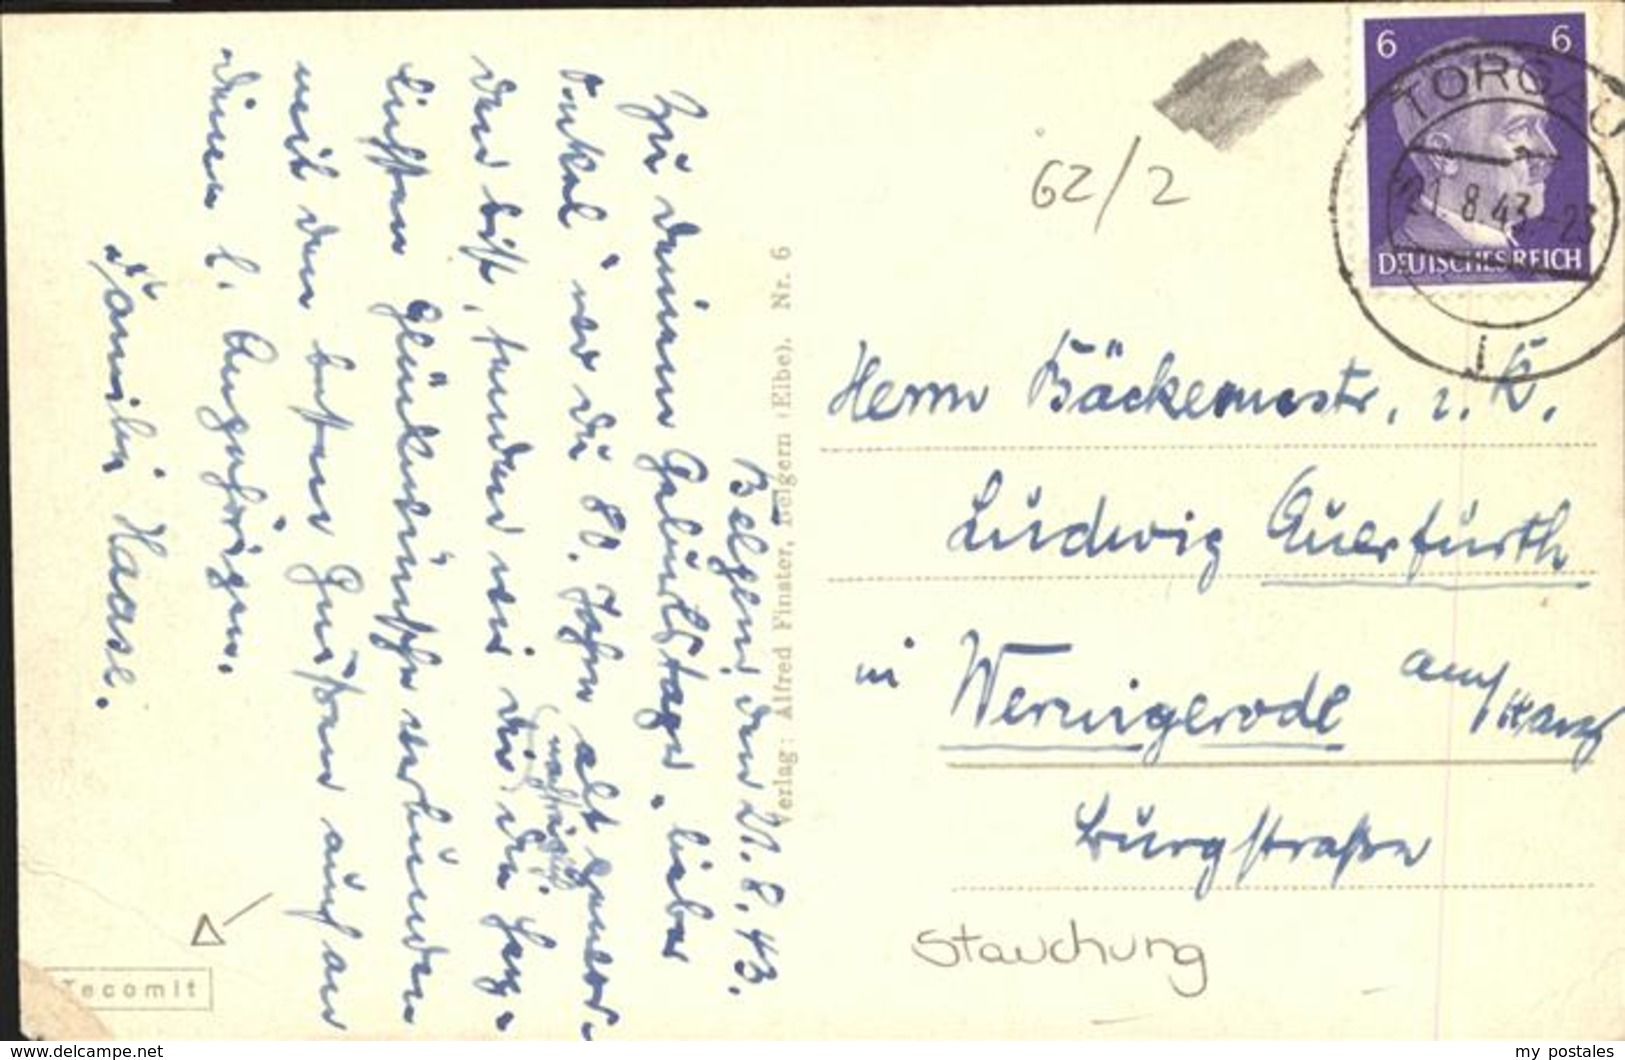 Belgern den 21.8.43.
Zu deinem Geburtstage, lieber
Onkel, wo du 80. Jahre alt gewor-
den bist, senden wir dir die herz-
nachträglich
lichsten Glückwünsche verbunden
mit den besten Grüßen auch an
deine l. Angehörigen.
Familie Haase.
Tecomit
Verlag: Alfred Finster, Belgern (Elbe). Nr. 6
62/2
6 6
DEUTSCHES REICH
TORGAU
21.8.43.-23
1
Herrn Bäckermstr. i. R.
Ludwig Querfurth
in Wernigerode am/Harz
Burgstraße
Stauchung
www.delcampe.net
my postales